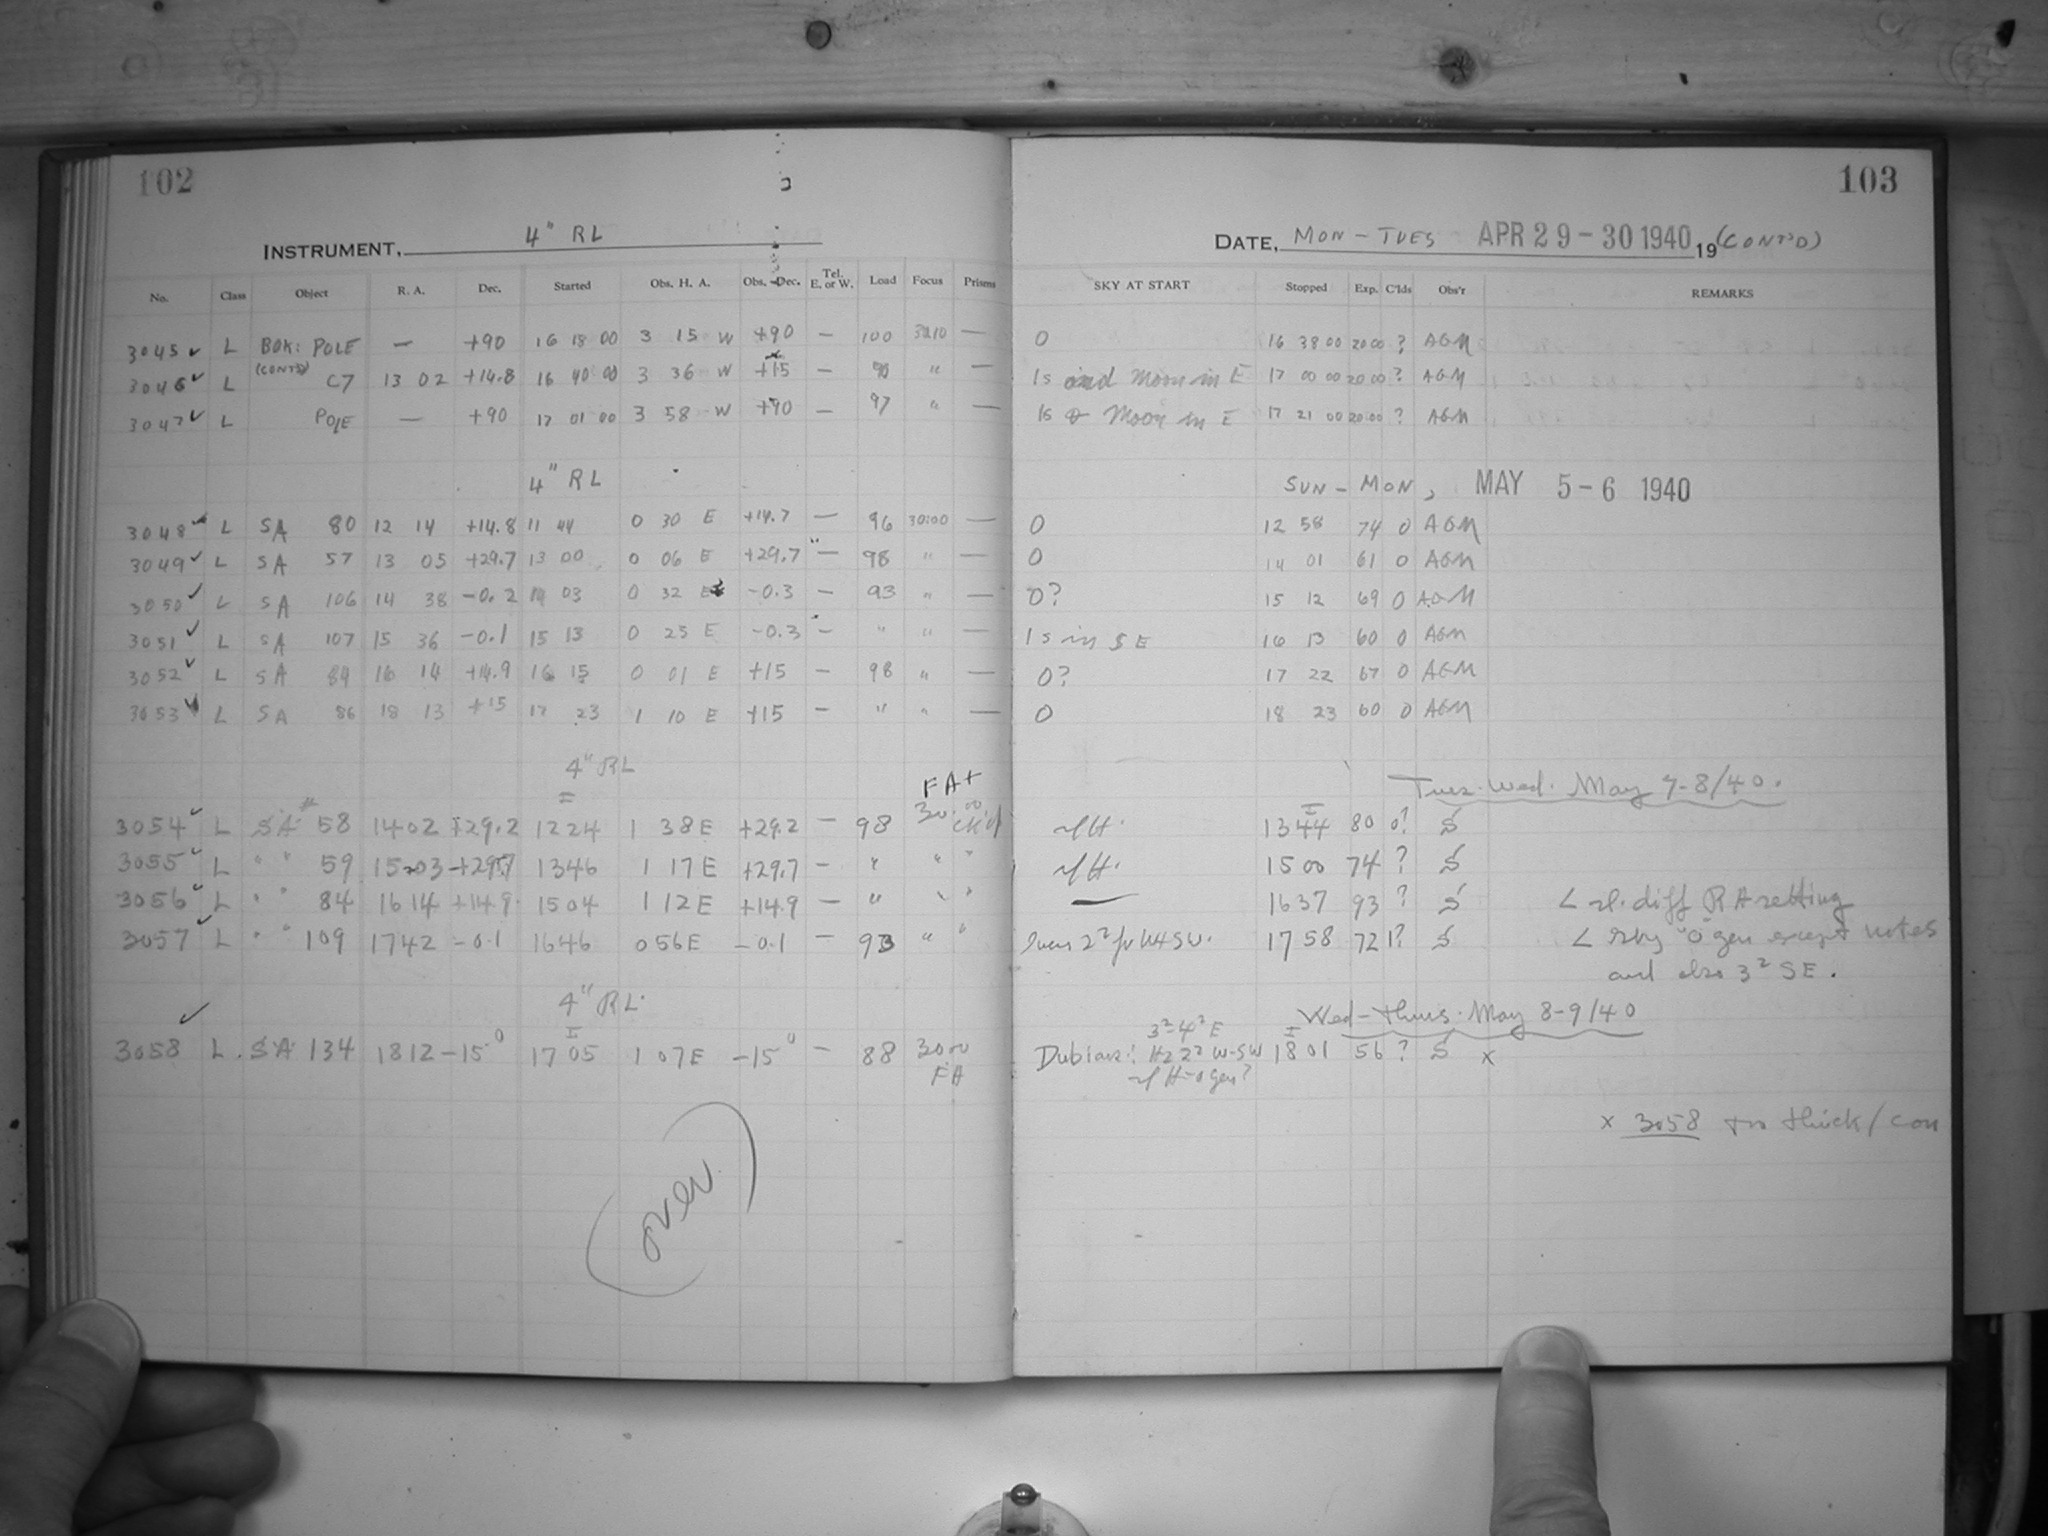 102
INSTRUMENT, 4" RL
No. Class Object R. A. Dec. Started Obs. H. A. Obs. Dec. Tel. E. or W. Load Focus Prisms
3045 ✓ L BOK: POLE — +90 16 18 00 3 15 W +90 — 100 3010 —
(CONT'D)
3046 ✓ L C7 13 02 +14.8 16 40 00 3 36 W +15 — 98 " —
3047 ✓ L POLE — +90 17 01 00 3 58 W +90 — 97 " —
4" RL
3048 ✓ L SA 80 12 14 +14.8 11 44 0 30 E +14.7 — 96 30:00 —
3049 ✓ L SA 57 13 05 +29.7 13 00 0 06 E +29.7 — 98 " —
3050 ✓ L SA 106 14 38 -0.2 14 03 0 32 E -0.3 — 93 " —
3051 ✓ L SA 107 15 36 -0.1 15 13 0 25 E -0.3 — " " —
3052 ✓ L SA 84 16 14 +14.9 16 15 0 01 E +15 — 98 " —
3053 ✓ L SA 86 18 13 +15 17 23 1 10 E +15 — " " —
4" RL
FA+
3054 ✓ L SA 58 1402 +29.2 1224 1 38 E +29.2 — 98 30:00
3055 ✓ L " " 59 1503 +29.7 1346 1 17 E +29.7 — " " "
3056 ✓ L " " 84 1614 +14.9 1504 1 12 E +14.9 — " " "
3057 ✓ L " " 109 1742 -0.1 1646 0 56 E -0.1 — 93 " "
4" RL.
3058 ✓ L. SA 134 1812 -15° 1705 1 07 E -15° — 88 3000
FA
(over)
103
DATE, MON - TUES APR 29-30 1940 19 (CONT'D)
SKY AT START Stopped Exp. C'lds Obs'r REMARKS
0 16 38 00 20 00 ? AGM
1s and Moon in E 17 00 00 20 00 ? AGM
1s Moon in E 17 21 00 20:00 ? AGM
SUN - MON, MAY 5-6 1940
0 12 58 74 0 AGM
0 14 01 61 0 AGM
0? 15 12 69 0 AGM
1s in SE 16 13 60 0 AGM
0? 17 22 67 0 AGM
0 18 23 60 0 AGM
Tues-Wed. May 7-8/40.
H. 1344 80 0? S
H. 1500 74 ? S
— 1637 93 ? S < diff RA setting
1758 72 1? S < Sky 0 gen except notes
and also 3² SE.
Wed-Thurs. May 8-9/40
3²-4² E
W-SW 1801 56 ? S x
gen?
x 3058 too thick/con